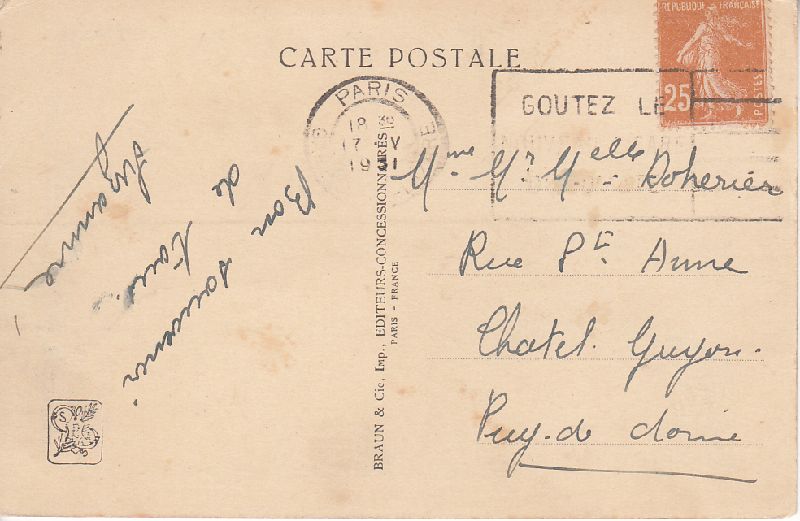 CARTE POSTALE
REPUBLIQUE FRANÇAISE
25
POSTES
PARIS
18 30
17 V
1931
GOUTEZ LE
Bon souvenir
de
Suzanne
BRAUN & Cie, Imp., EDITEURS-CONCESSIONNAIRES
PARIS - FRANCE
Mme Mr Melle
Rue Ste Anne
Chatel Guyon.
Puy-de dome